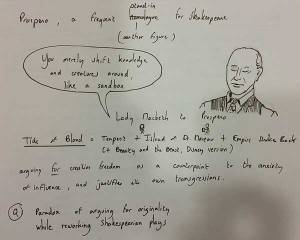 Prospero, a frequent stand-in for Shakespeare
(author figure)
You merely shift knowledge
and creatures around,
like a sandbox
Lady Macbeth to Prospero
= Tempest + Island of Dr. Moreau + Empire Strikes Back
(+ Beauty and the Beast, Disney version)
arguing for creative freedom as a counterpoint to the anxiety
of influence, and justifies its own transgressions.
Q Paradox of arguing for originality
while reworking Shakespearian plays